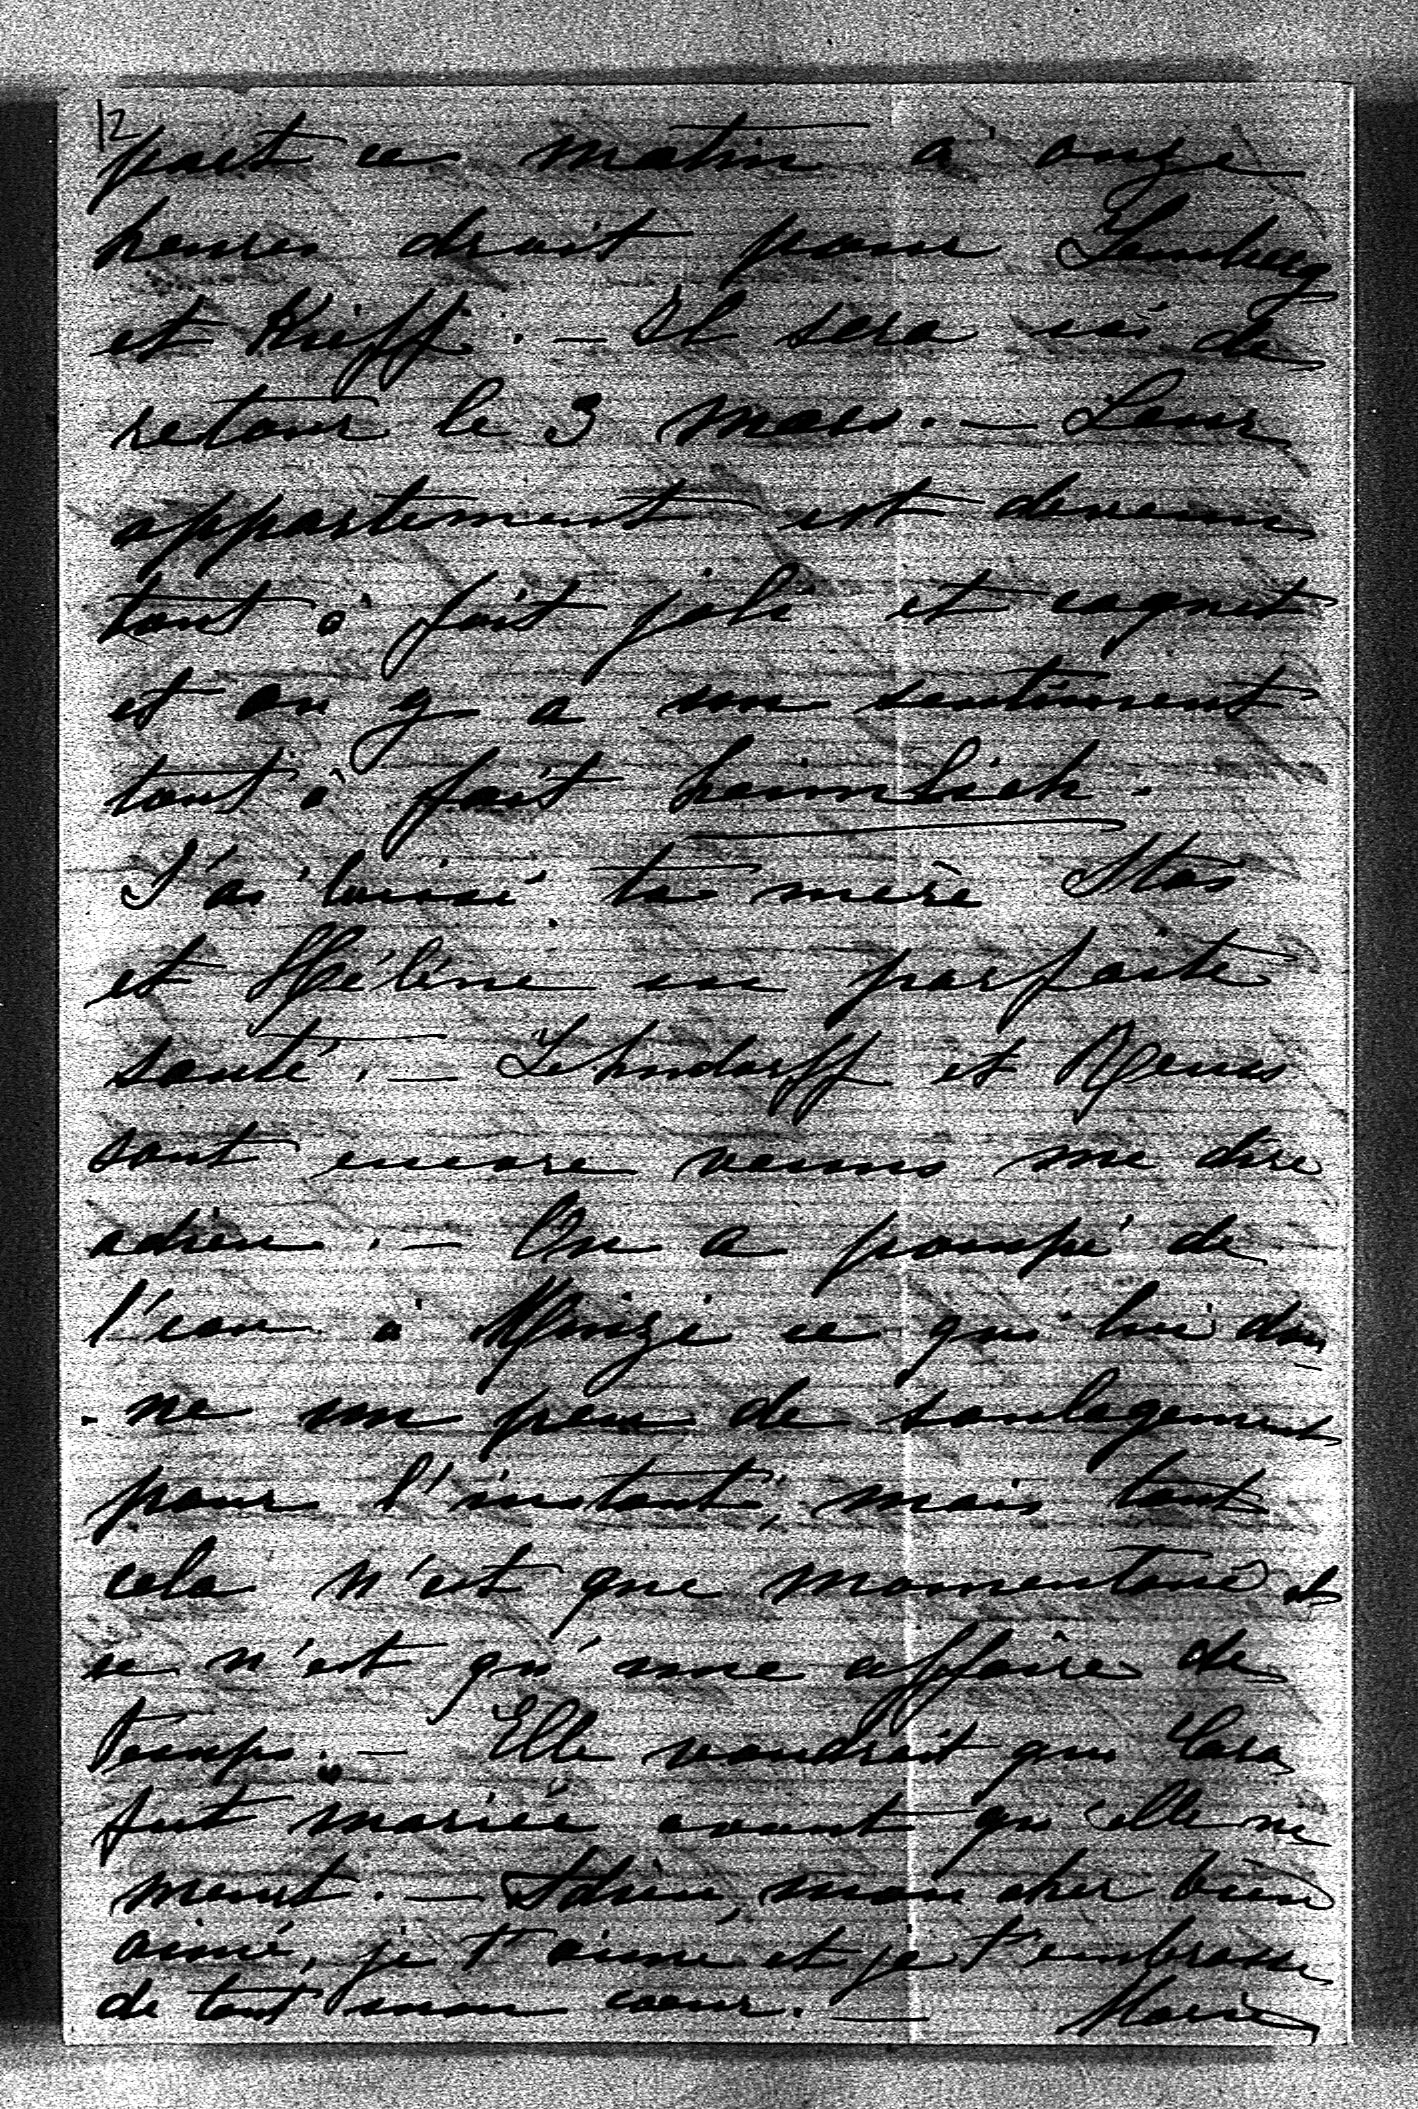 12
part ce matin à onze
heures droit pour Lemberg
et Kieff. — Il sera ici de
retour le 3 mars. — Leur
appartement est devenu
tout à fait joli et coquet
et on y a un sentiment
tout à fait heimlich.
J'ai laissé ta mère Stas
et Hélène en parfaite
santé. — Lehndorff et Reuss
sont encore venus me dire
adieu. — On a pompé de
l'eau à Minzi ce qui lui don
-ne un peu de soulagement
pour l'instant, mais tout
cela n'est que momentané et
ce n'est qu'une affaire de
temps. — Elle voudrait que
fut mariée avant qu'elle ne
meurt. — Adieu, mon cher bien
aimé, je t'aime et je t'embrasse
de tout mon coeur. — Marie